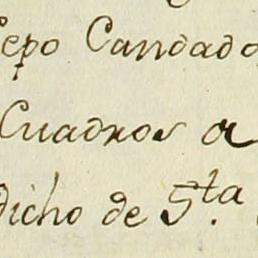 Cepo Candado
Cuadros a
dicho de 5.ta